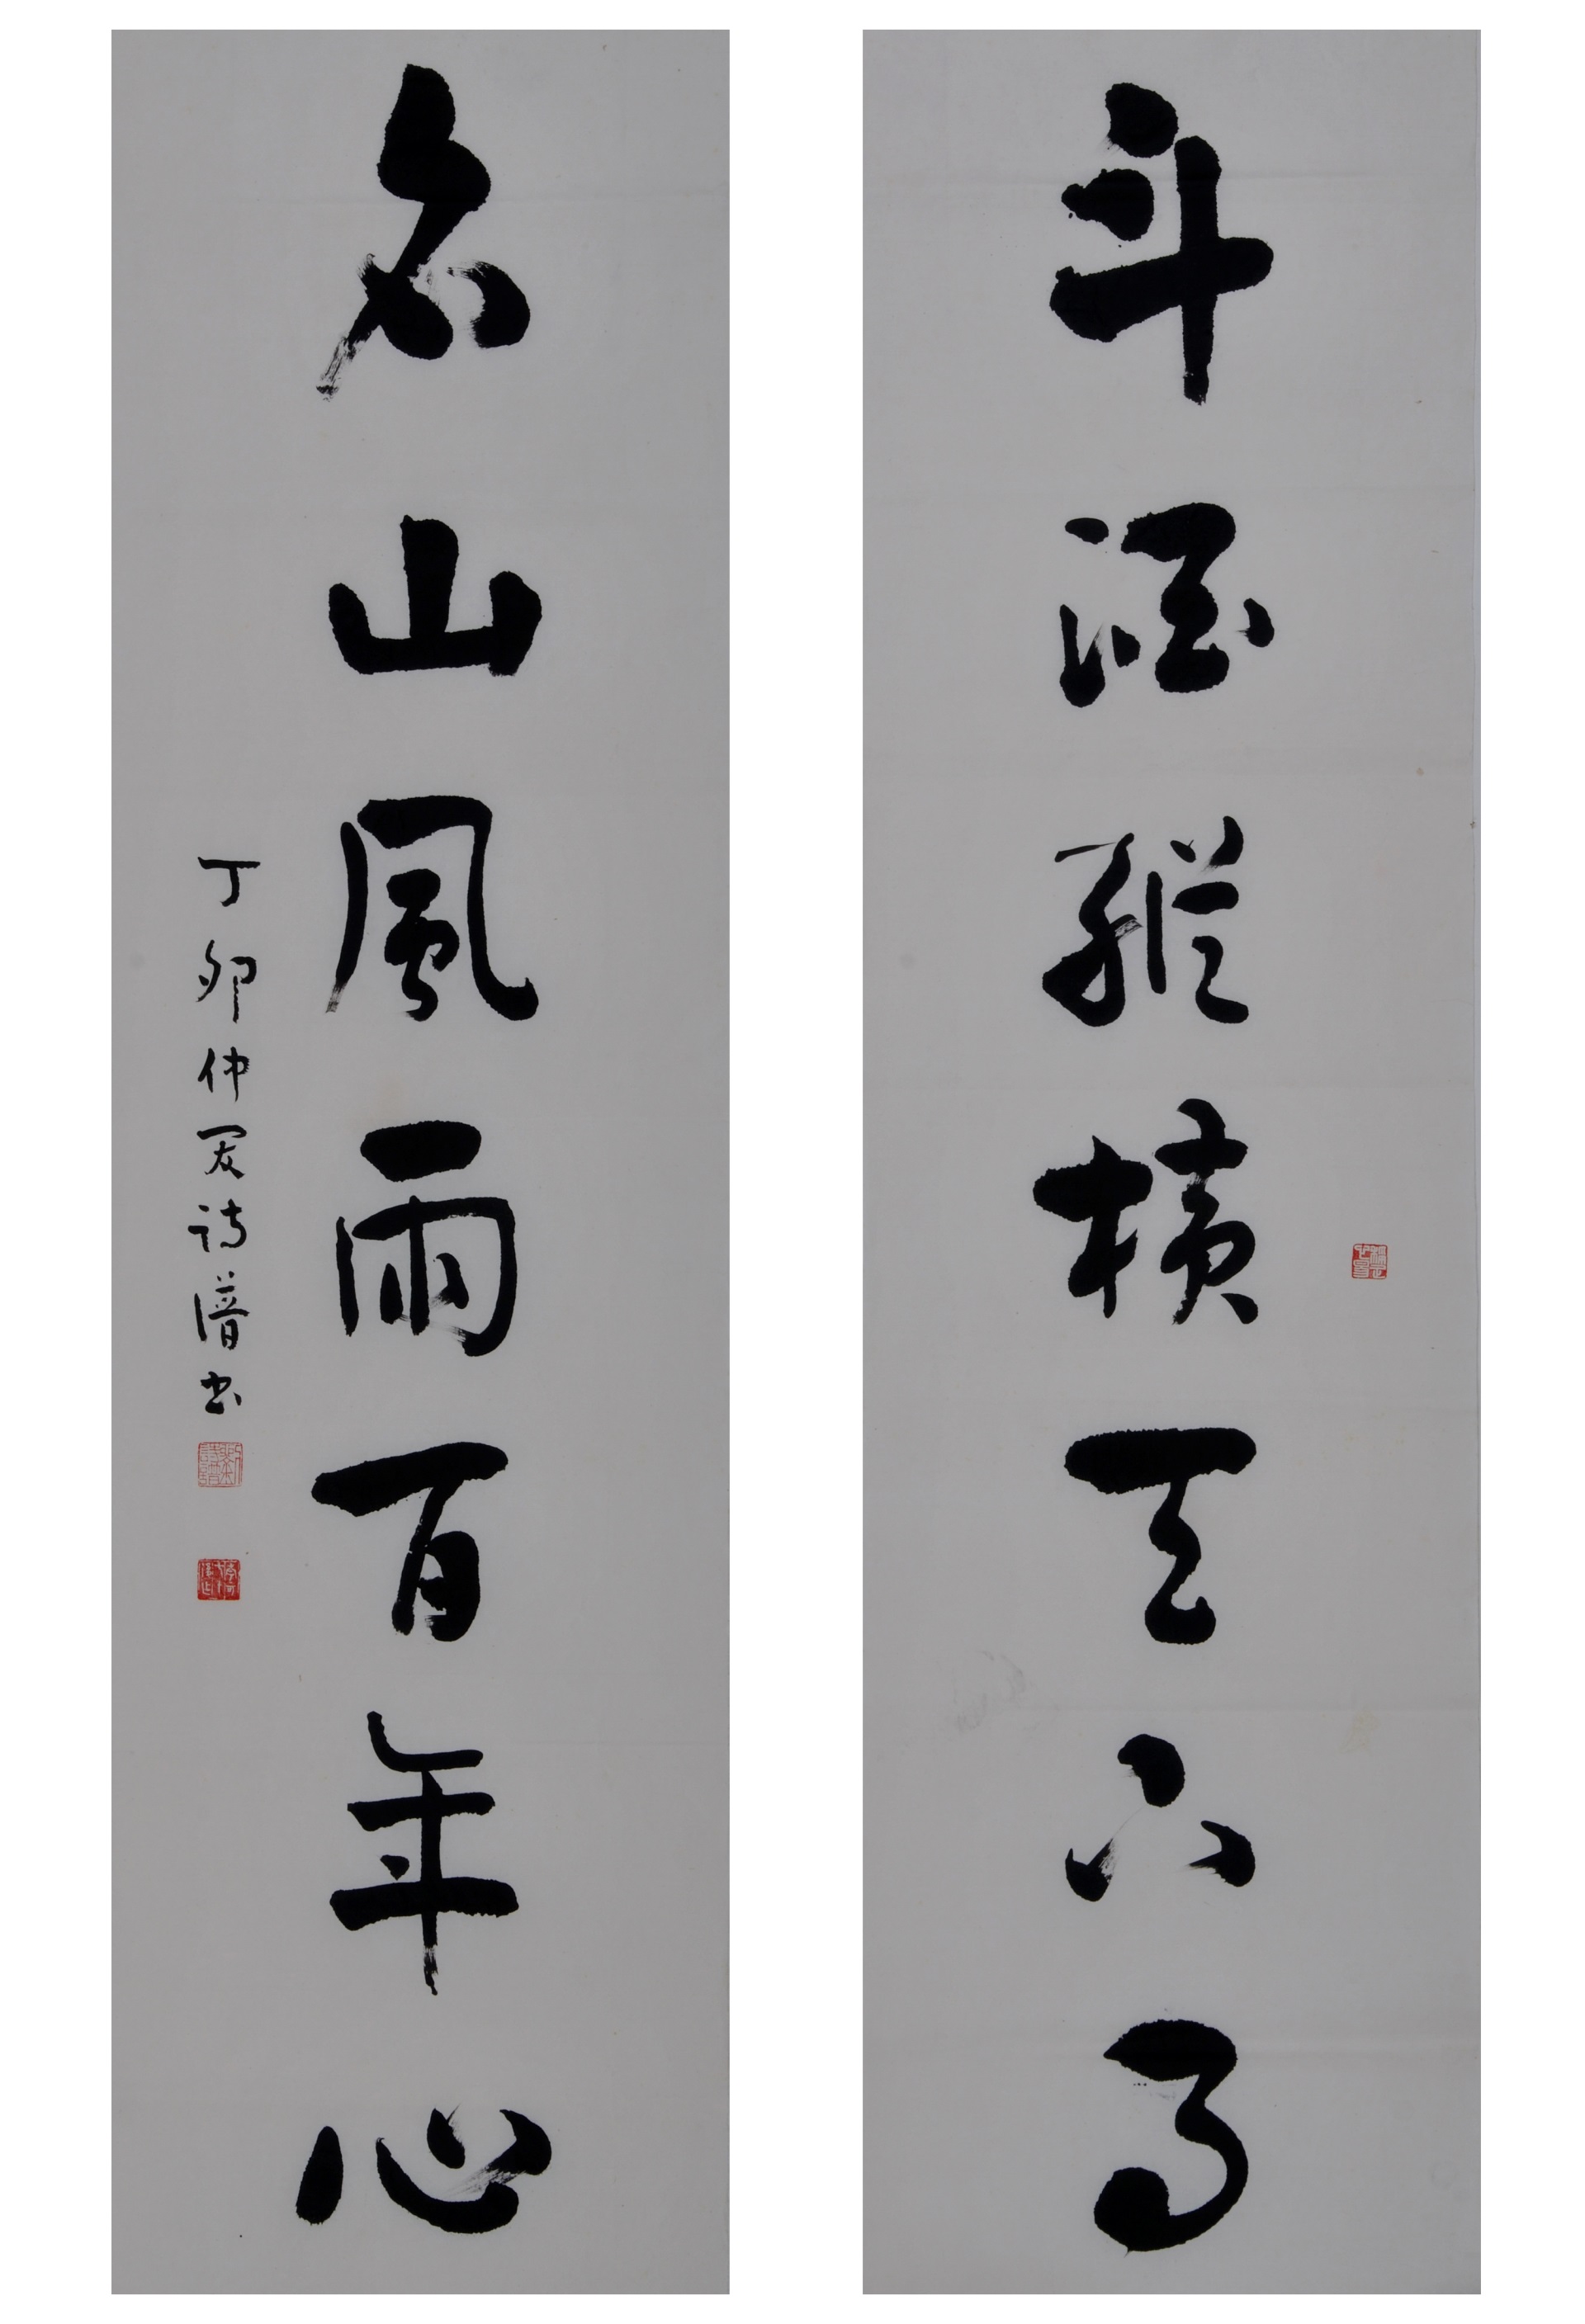 斗酒縱橫天下事
名山風雨百年心
丁卯仲夏诗谱书